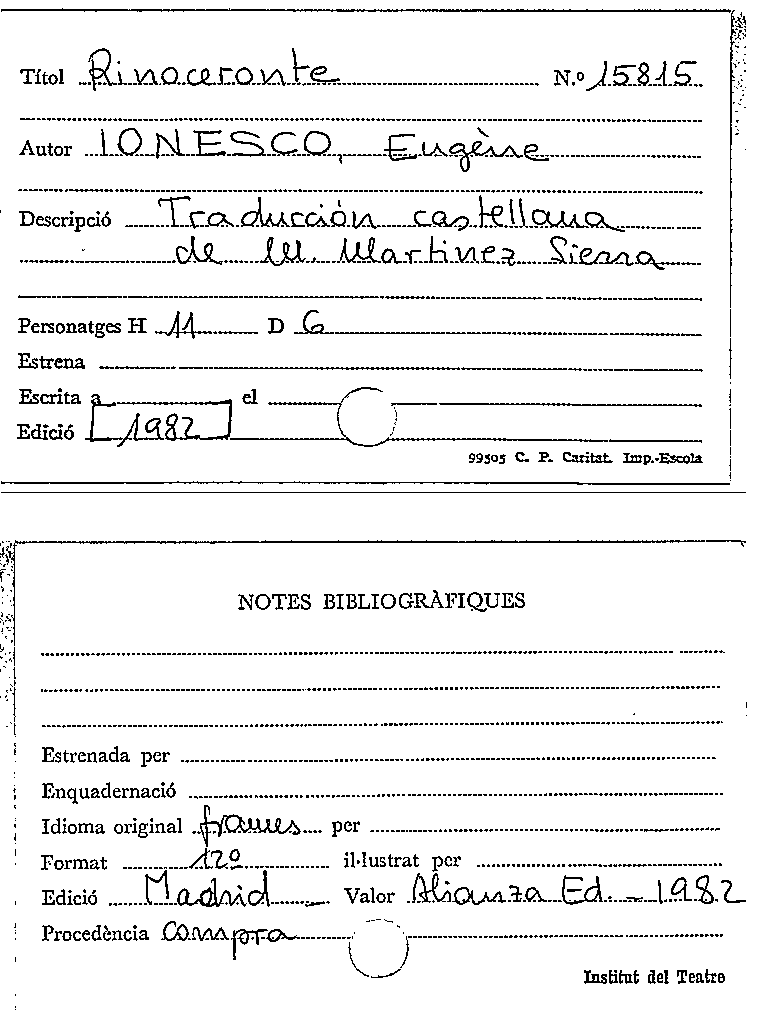 Títol Rinoceronte N.º 15815
Autor IONESCO, Eugène
Descripció Traducción castellana
de M. Martinez Sierra
Personatges H 11 D 6
Estrena
Escrita a el
Edició 1982
99505 C. P. Caritat. Imp.-Escola
NOTES BIBLIOGRÀFIQUES
Estrenada per
Enquadernació
Idioma original frances per
Format 12º il·lustrat per
Edició Madrid - Valor Alianza Ed. - 1982
Procedència compra
Institut del Teatre